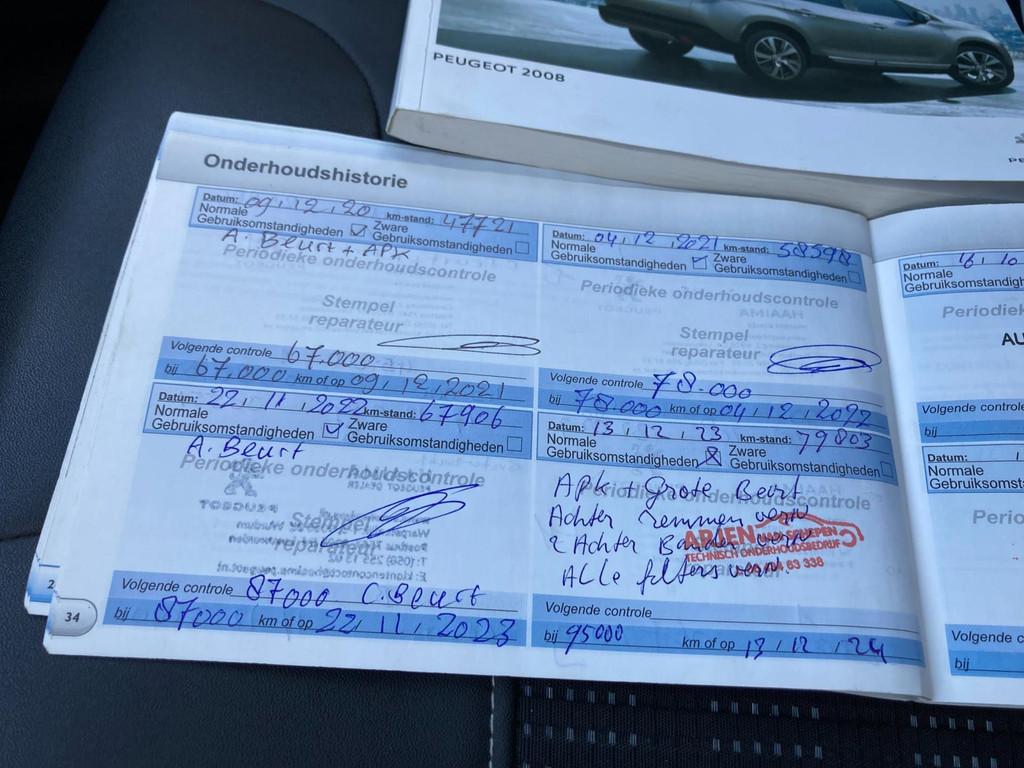 PEUGEOT 2008
Onderhoudshistorie
Datum: 09, 12, 20 km-stand: 47721
Normale Gebruiksomstandigheden ✓ Zware Gebruiksomstandigheden
A. Beurt + APK
Periodieke onderhoudscontrole
Stempel
reparateur
Volgende controle 67.000
bij 67.000 km of op 09, 12, 2021
Datum: 04, 12, 2021 km-stand: 58598
Normale Gebruiksomstandigheden ✓ Zware Gebruiksomstandigheden
Periodieke onderhoudscontrole
Stempel
reparateur
Volgende controle 78.000
bij 78.000 km of op 04, 12, 2022
Datum: 22, 11, 2022 km-stand: 67906
Normale Gebruiksomstandigheden ✓ Zware Gebruiksomstandigheden
A. Beurt
Periodieke onderhoudscontrole
Stempel
reparateur
Volgende controle 87000 C. Beurt
bij 87000 km of op 22, 11, 2023
Datum: 13, 12, 23 km-stand: 79803
Normale Gebruiksomstandigheden X Zware Gebruiksomstandigheden
Periodieke onderhoudscontrole
APK + Grote Beurt
Achter remmen verv
2 Achter Banden verv
ALLe filters verv.
ARJEN
TECHNISCH ONDERHOUDSBEDRIJF
63 338
Volgende controle
bij 95000 km of op 13, 12, 24
34
2
Datum: 16, 10
Normale
Gebruiksomstandigh
Periodiek
AU
Volgende controle
bij
Datum:
Normale
Gebruiksomst
Perio
Volgende c
bij